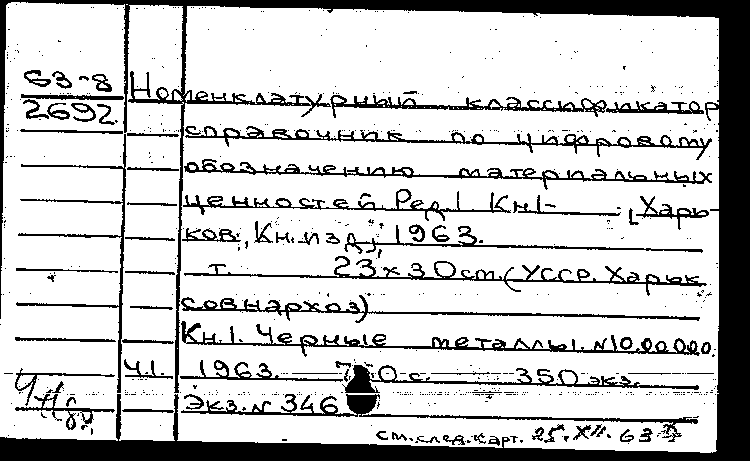 63-8
2692
Номенклатурный классификатор
справочник по цифровому
обозначению материальных
ценностей. Ред. 1 Кн. 1- . Харь-
ков, Кн. изд, 1963.
т. 23х30 см. (УССР. Харьк
совнархоз)
Кн. 1. Черные металлы. N10.00000.
Ч.1. 1963. с. 350 экз.
Экз. N 346
см. след. карт. 25. XII. 63